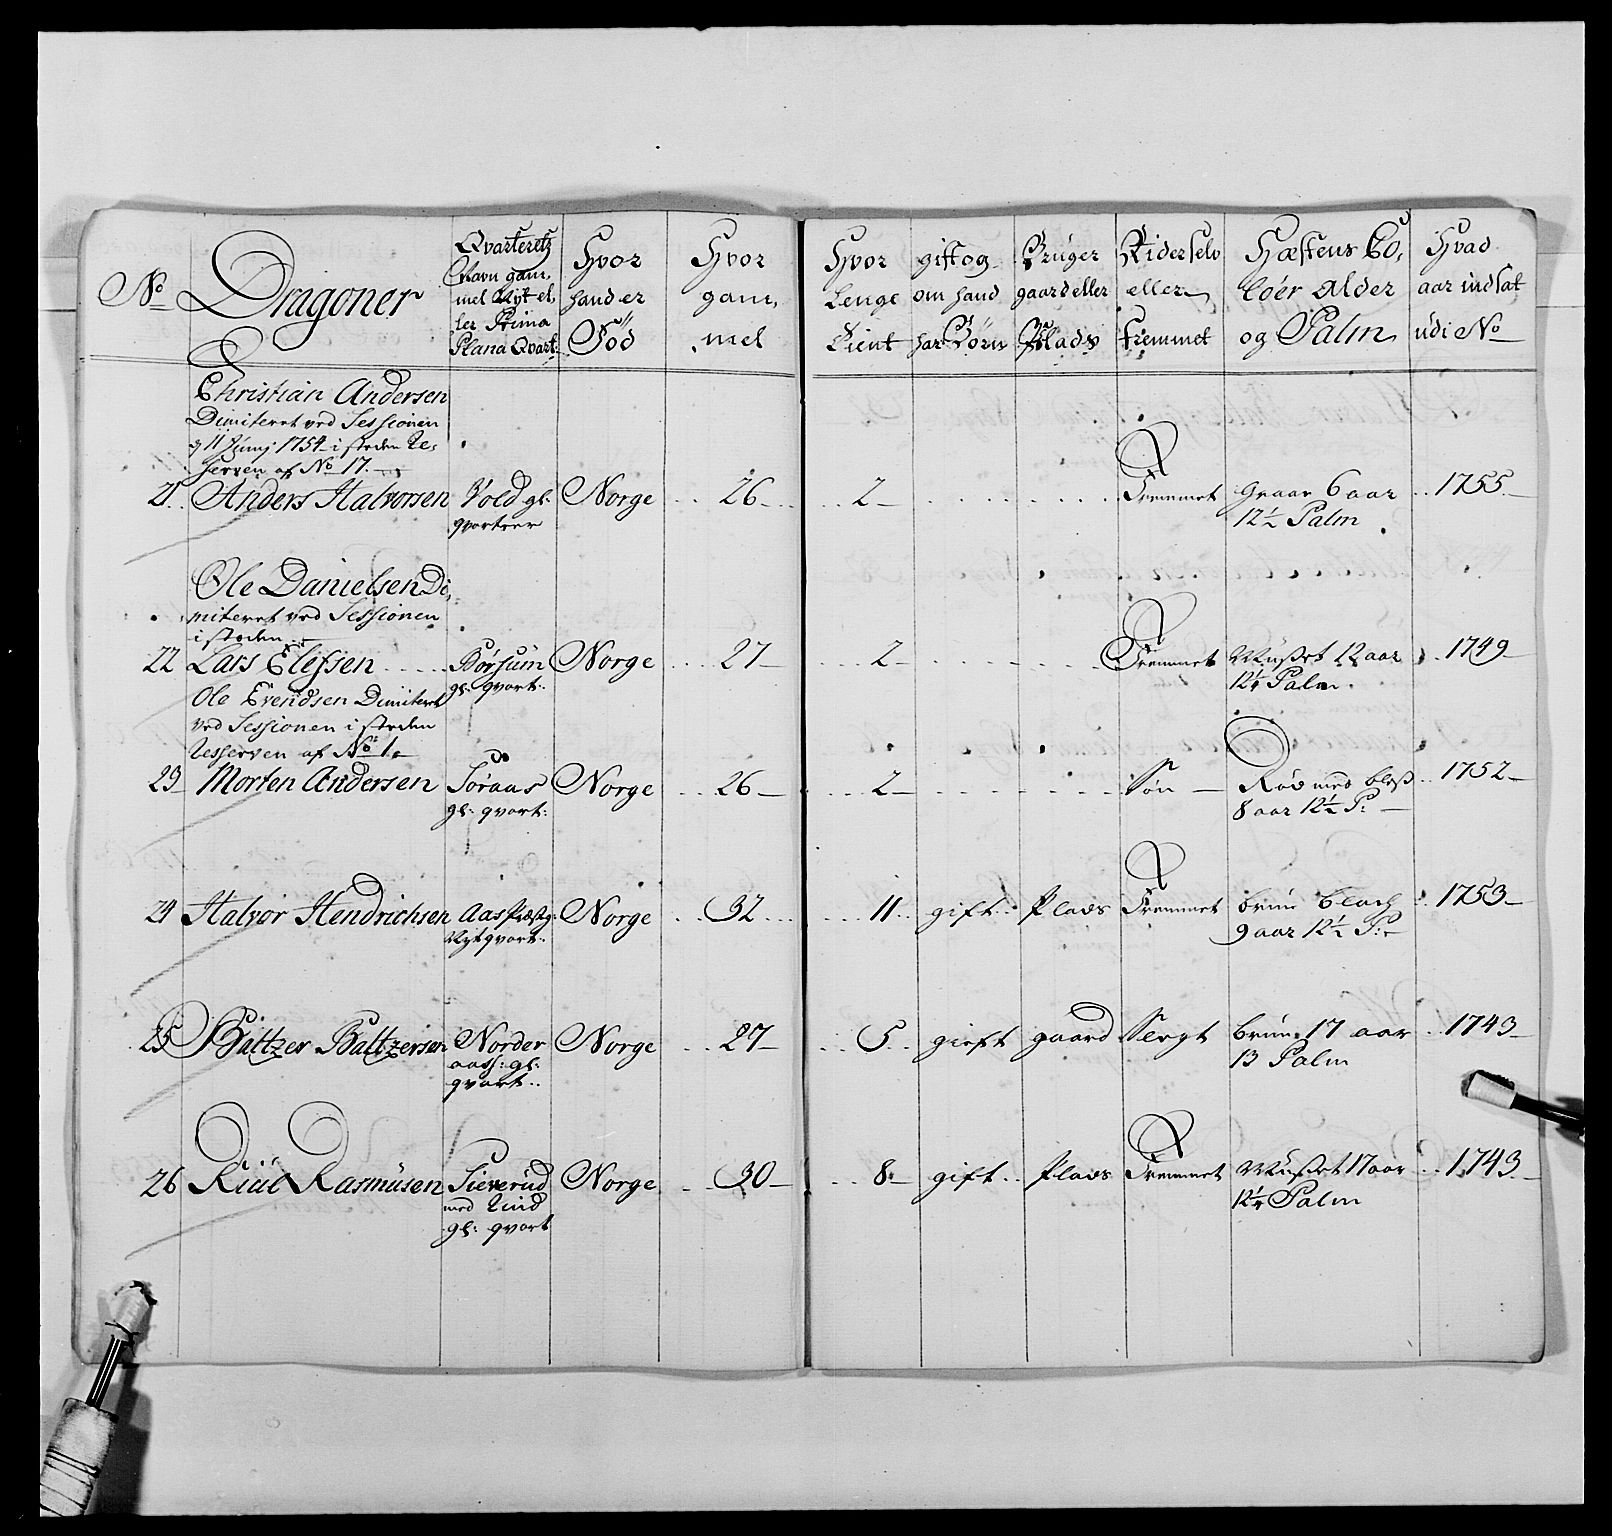 No
Dragoner
Qvarteretz
Navn gam,
mel Nyt el,
ler Prima
Plana Qvart:
Hvor
hand er
Föd
Hvor
gam,
mel
Hvor
Lenge
Tient
gift og
om hand
har Börn
Bruger
gaard eller
Plads
Rider selv
eller
fremmet
Hæstens Co,
löer Alder
og Palm
Hvad
aar indsat
udi No
Christian Andersen
Dimiteret ved Sessionen
11 Junij 1754 i steden Re,
serven af No 17.
21. Anders Halvorsen Vold gl: Norge 26 2 Fremmet Graae 6 aar 1755
qvarteer 12½ Palm
Ole Danielsen Di,
miteret ved Sessionen
i steden
22 Lars Elefsen Börsum Norge 27 2 Fremmet Musset 12 aar 1749
gl: qvart: 12¼ Palm
Ole Evendsen Dimiteret
ved Sessionen i steden
Resserven af No 1.
23 Morten Andersen Söraas Norge 26 2 Sön Röd med bless 1752
gl: qvart: 8 aar 12½ P:
24 Halvor Hendrichsen Aas Præstg: Norge 32 11 gift Plads Fremmet bruun black 1753
Nyt qvart: 9 aar 12½ P:
25 Baltzer Baltzersen Norder Norge 27 5 gieft gaard Selvgt bruun 17 aar 1743
aass: gl: 13 Palm
qvart:
26 Riül Rasmüsen Sieverud Norge 30 8 gift Plads Fremmet Musset 17 aar 1743
med Lund 12¼ Palm
gl: qvart